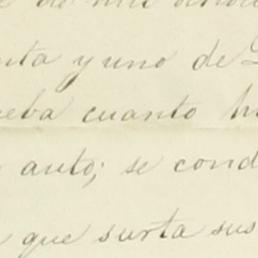 de mis
nta y uno de
eba cuanto h
auto; se cond
que surta sus